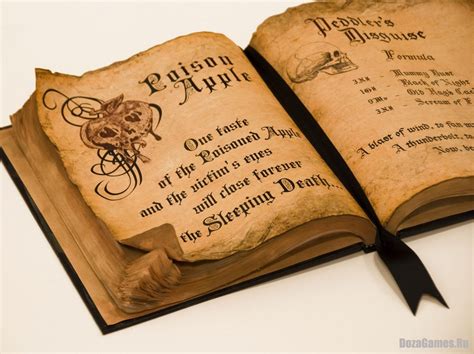 Poison
Apple
One taste
of the Poisoned Apple
and the victim's eyes
will close forever
the Sleeping Death...
Peddler's
Disguise
Formula
Mummy Dust
Black of Night
Old Hag's
Scream of
A blast of wind, to fan my
A thunderbolt, to
Now, be
DozaGames.Ru